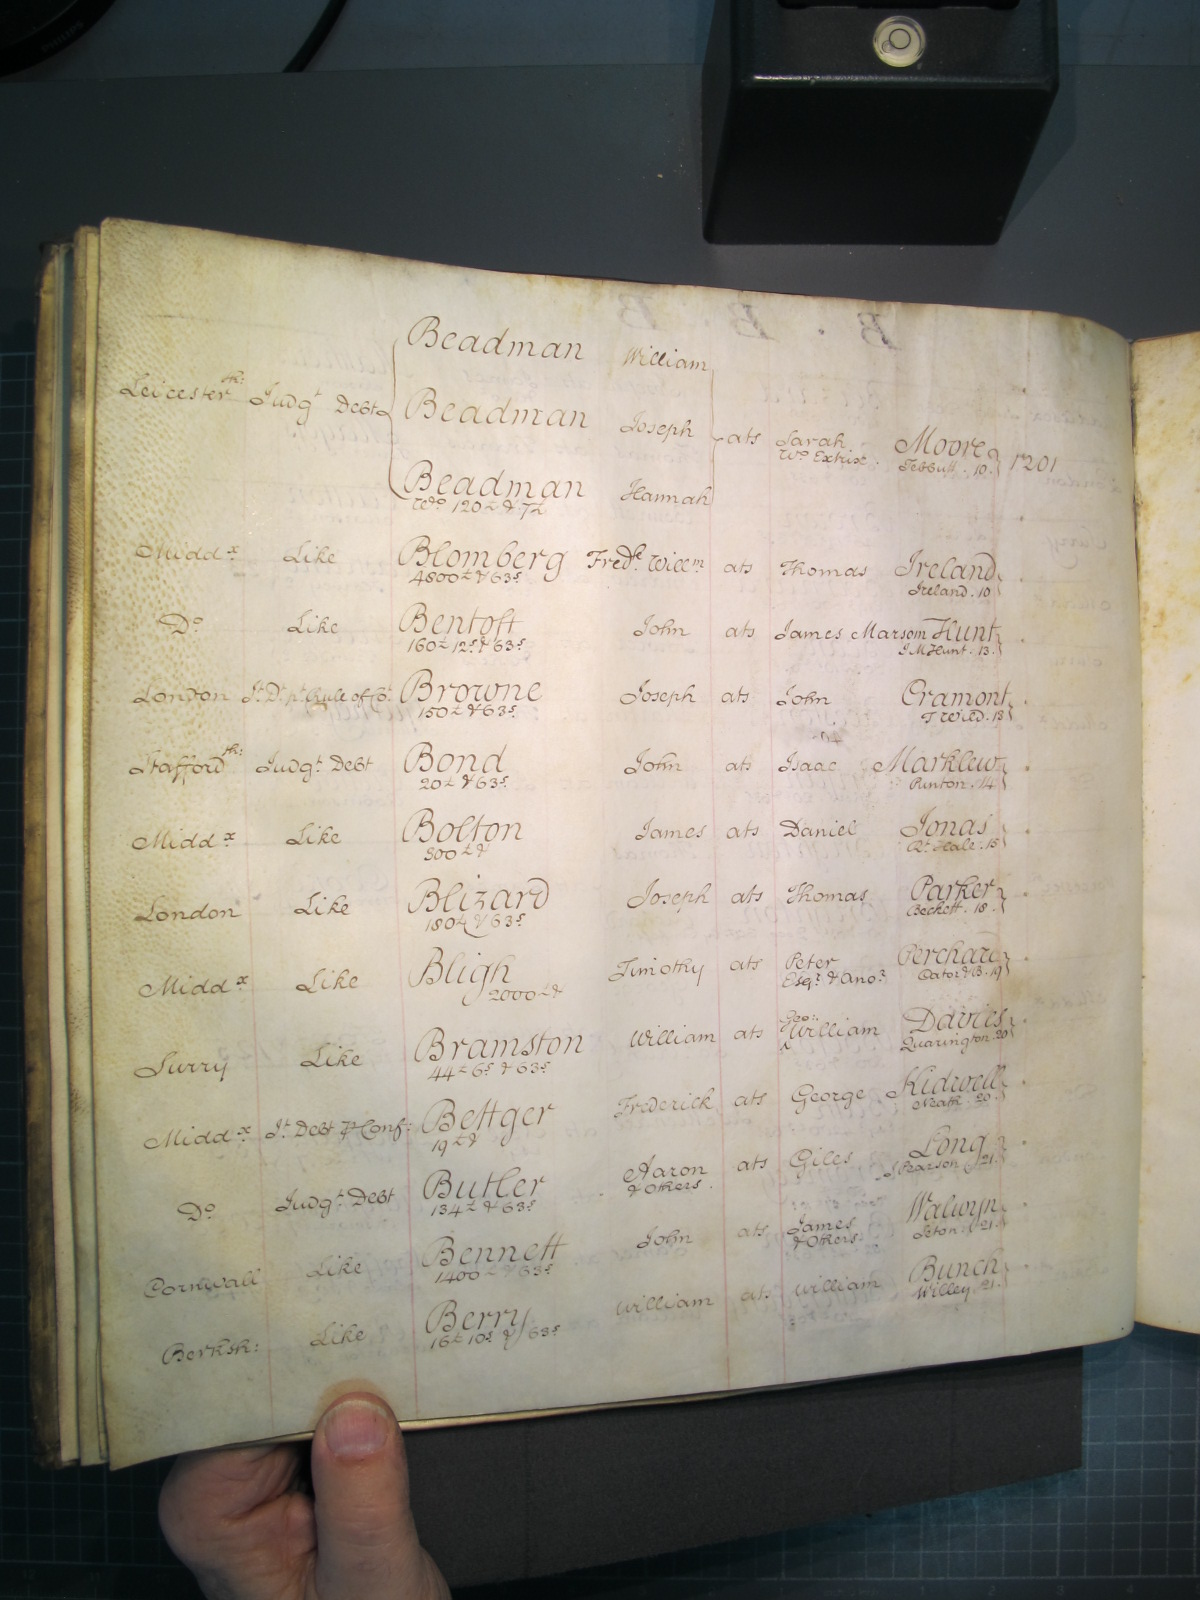 Beadman William
Leicester sh: Judgt Debt Beadman Joseph ats Sarah Moore 1201
Wo Extrix. Tebbutt. 10.
Beadman Hannah
Wdo 120£ & 72
Middx Like Blomberg Fredk Willm ats Thomas Ireland
4800£ & 63s Ireland. 10
Do Like Bentoft John ats James Marsom Hunt
160£ 12s & 63s J M Hunt. 13.
London Jt Dt pt Rule of Ct: Browne Joseph ats John Cramont
150£ & 63s T Wild. 13
Stafford sh: Judgt Debt Bond John ats Isaac Marklew
20£ & 63s Punton. 14
Middx Like Bolton James ats Daniel Jonas
300£ & Rt Hale. 15
London Like Blizard Joseph ats Thomas Parker
180£ & 63s Beckett. 18.
Middx Like Bligh Timothy ats Peter Perchard
2000£ & Esqr & Anor Cator & B. 19
Geo:
Surry Like Bramston William ats William Davies
44£ 6s & 63s Quarington. 20
Middx Jt Debt P Conf: Bettger Frederick ats George Kidwell
19£ & Neath. 20.
Do Judgt Debt Butler Aaron ats Giles Long
134£ & 63s & Others. J Pearson. 21.
Cornwall Like Bennett John ats James Walwyn
1400£ & 63s & Others. Seton. 21.
Berksh: Like Berry William ats William Bunch
16£ 10s & 63s Willey 21.